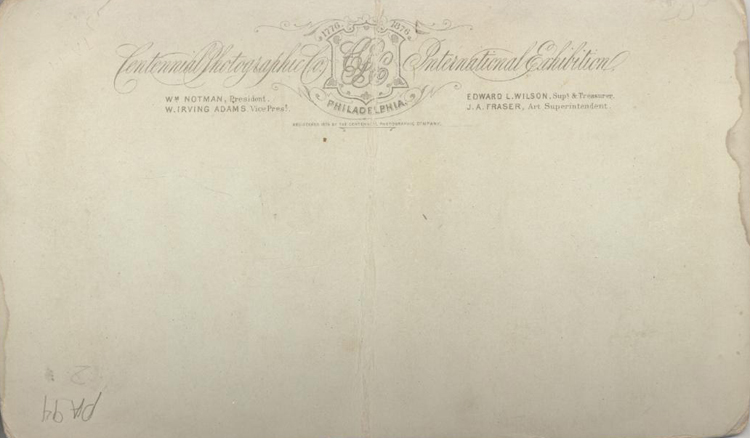 1776. 1876.
Centennial Photographic Co., International Exhibition,
PHILADELPHIA.
Wm NOTMAN, President.
W. IRVING ADAMS. Vice Prest.
EDWARD L. WILSON, Supt & Treasurer.
J. A. FRASER, Art Superintendent.
REGISTERED 1876 BY THE CENTENNIAL PHOTOGRAPHIC COMPANY.
2
PA 94